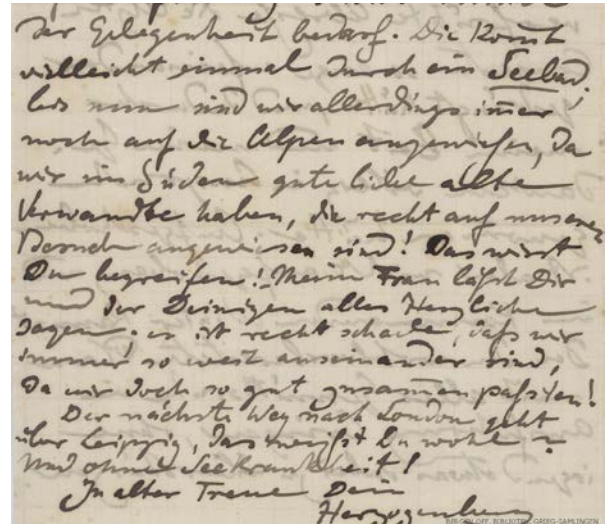 der Gelegenheit bedarf. Die kommt
vielleicht einmal durch ein Seebad;
bis nun sind wir allerdings im̄er
noch auf die Alpen angewiesen, da
wir im Süden gute liebe alte
Verwandte haben, die recht auf unseren
Besuch angewiesen sind! Das wirst
Du begreifen! Meine Frau läßt Dir
und der Deinigen alles Herzliche
sagen; es ist recht schade, daß wir
immer so weit auseinander sind,
da wir doch so gut zusam̄en paßten!
Der nächste Weg nach London geht
über Leipzig, das weißt Du wohl?
Und ohne Seekrankheit!
In alter Treue Dein
Herzogenberg
BERGEN OFF. BIBLIOTEK, GRIEG-SAMLINGEN